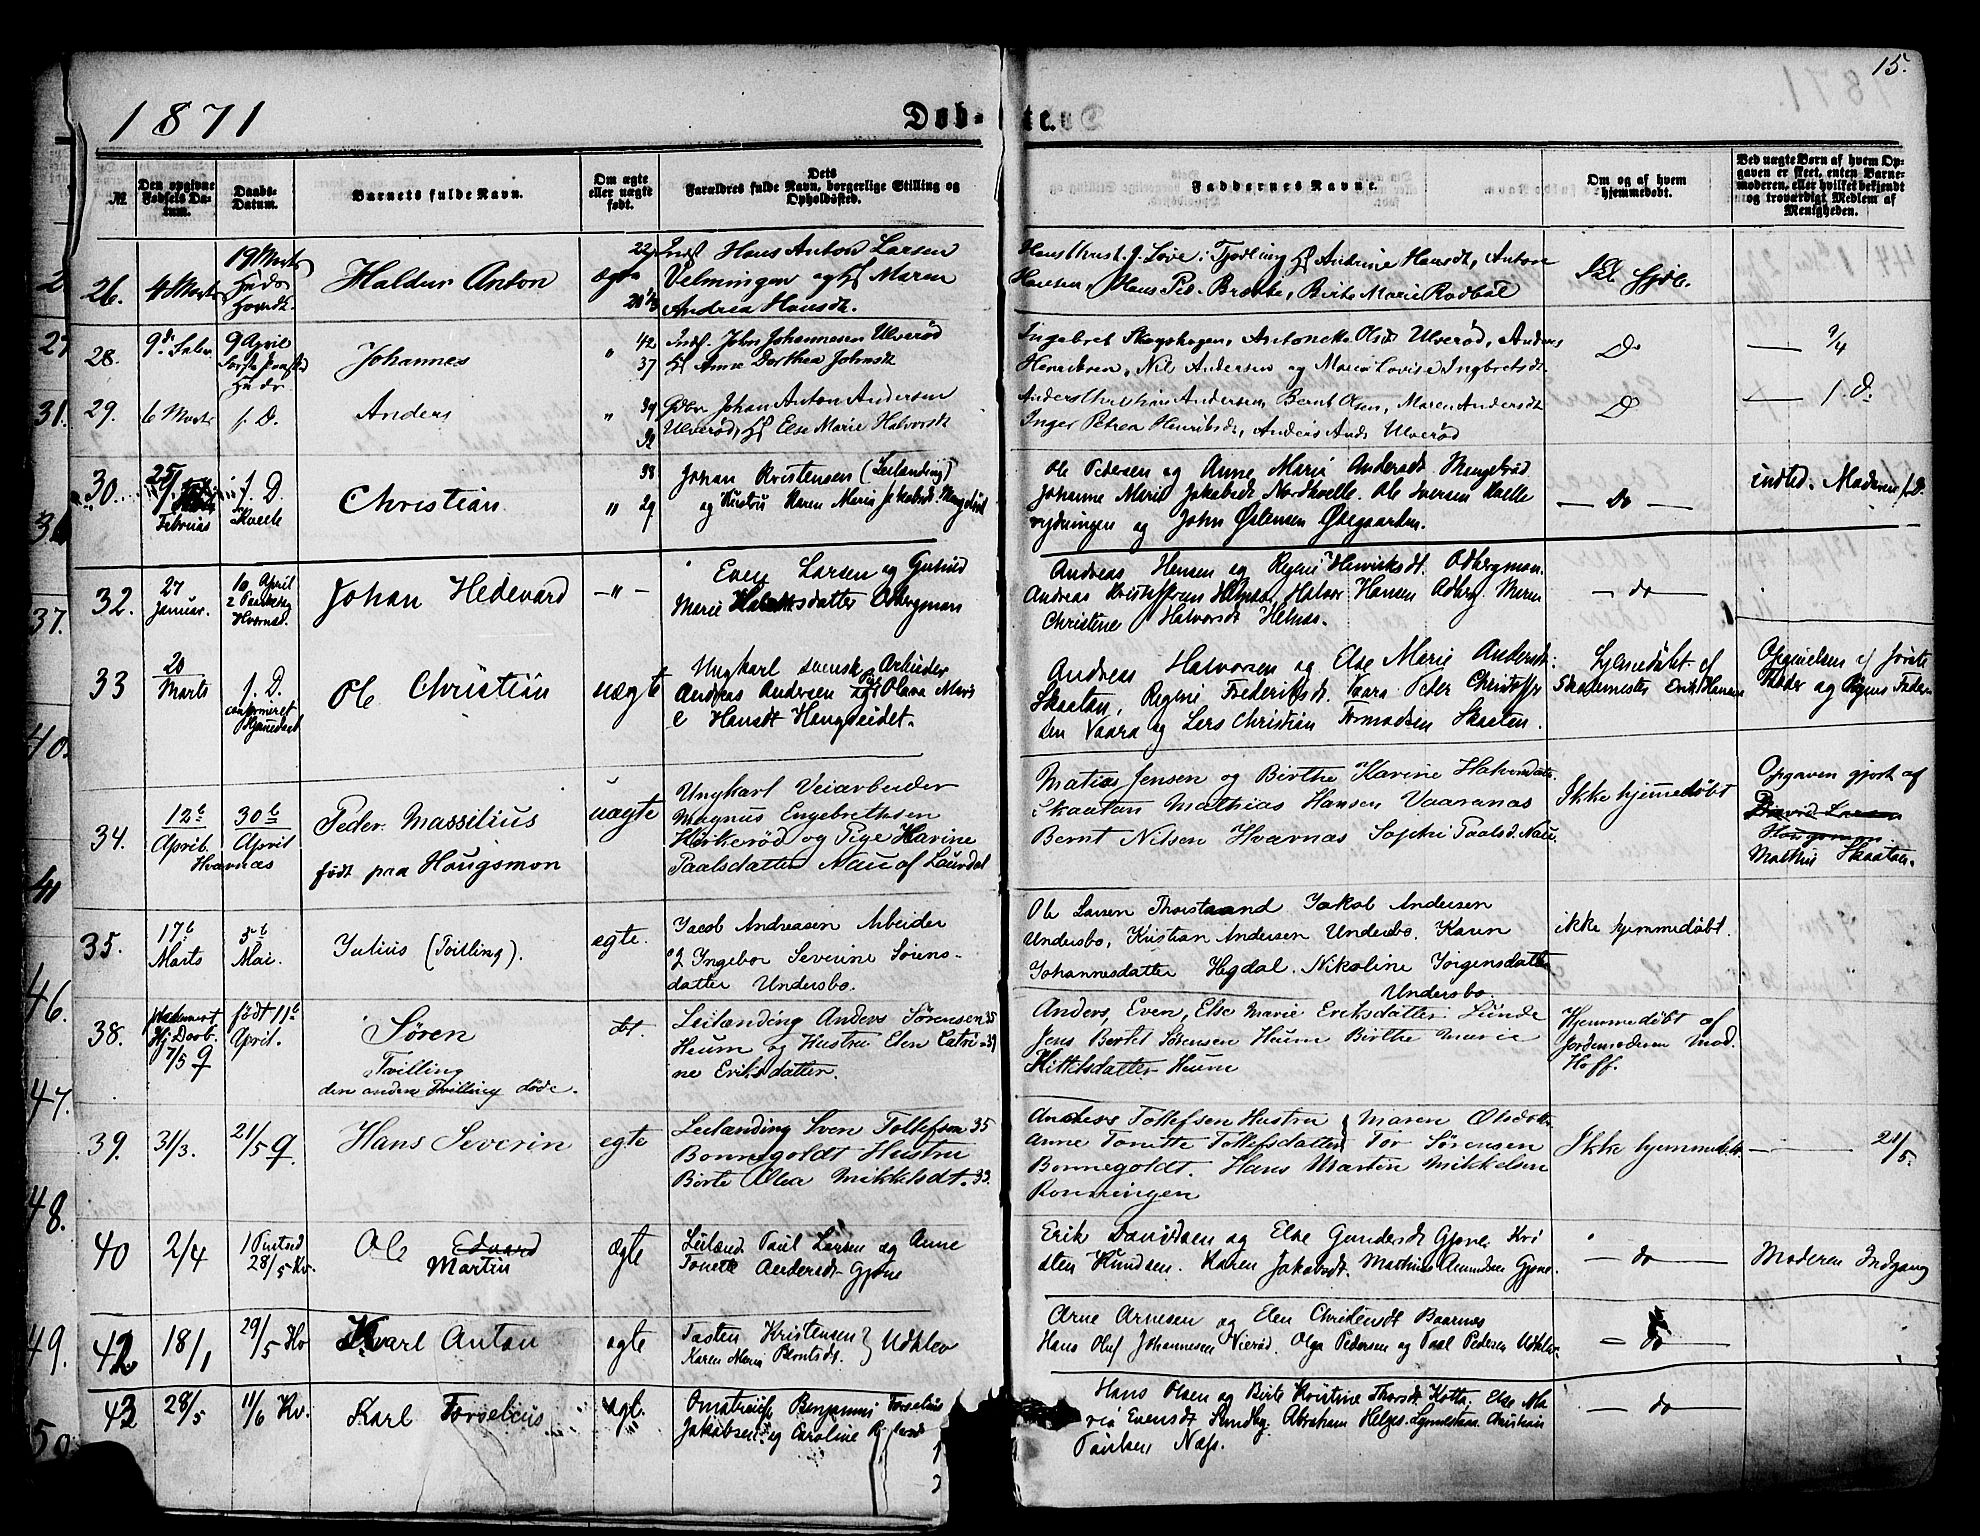 1871
Døb-
te.
15.
№
Den opgivne Fødsels Datum.
Daabs-Datum.
Barnets fulde Navn.
Om ægte eller uægte født.
Dets Forældres fulde Navn, borgerlige Stilling og Opholdssted.
Faddernes Navne.
Om og af hvem hjemmedøbt.
Ved uægte Børn af hvem Opgaven er skeet, enten Barnemoderen, eller hvilket bekjendt og troværdigt Medlem af Menigheden.
26. 4 Marts 19 Marts Haldur Anton ægte Hans Anton Larsen
Velmingen og Maren
Andrea Hansdt.
Andrine Hansdt, Anton
Hansen, Hans Ped. Birte Marie Rødbøl
28. 9 April Johannes " 42 37 John Johannesen Ulverød
Anne Dorthea Johnsdt
Ingebret Skogshagen, Antonette Olsdt Ulverød, Anders
Henriksen, Nil Andersen og Maria Lovise Ingbretsdt.
Do
9/4
29. 6 Marts f. D. Anders " 39 32 Johan Anton Andersen
Ulverød, Else Marie Halvorsdt
Anders Christian Andersen, Bernt Olsen, Maren Andersdt
Inger Petrea Henriksdt, Anders And. Ulverød
Do
f. D.
30. 25 Februar f. D. Kvelle Christian " 38 29 Johan Kristensen (Leilanding)
og Hustru Karen Maria Jakobsdt
Ole Pedersen og Anne Marie Andersdt
Johanne Marie Jakobsdt Nordkvelle. Ole Iversen Kvelle
rydningen og John Østensen Ødegaarden.
do
indled. Moderen f. D.
32. 27 Januar. 10 April 2 Paaskedag Johan Hedevard — " — Even Larsen og Gunild
Marie datter Odbergmon
Andreas Hansen og Regine Henriksdt. Odbergmon.
Andreas Kristoffersen Helnæs, Halvor Hansen Odberg. Maren
Christine Halvorsdt Helnæs.
do
33 20 Marts f. D. Ole Christian uægte Ungkarl svensk Arbeider
Andreas Andersen Pige Olava Mari
e Hansdt Hengseidet.
Andreas Halvorsen og Else Marie Andersdt.
Skaatan, Regine Frederiksdt. Vaara Peder Christoffer
sen Vaara og Lars Christian Tormodsen Skaaten.
Hjemmedøbt af
Erik Hansen
Opgivelsen af første
Fader og Regine Freder
34. 12te April 30te April Hvarnæs Peder Massilius
født paa Hougsmon
uægte Ungkarl Veiarbeider
Magnus Engebrethsen
og Pige Karine
Paalsdatter Nau af Laurdal
Matias Jensen og Birthe Karine Halvorsdatter
Skaatan Mathias Hansen Vaaranæs
Bernt Nilsen Hvarnæs Sophi Paalsd. Nau.
Ikke hjemmedøbt
Opgaven gjort af
David Larsen
Hougsmon
Mathias Skaatan.
35. 17de Marts 5te Mai. Julius (Tvilling). egte. Jacob Andreasen Arbeider
og Ingebor Severine Sørens-
datter Undersbo.
Ole Larsen Thorstrand Jakob Andersen
Undersbo, Kristian Andersen Undersbo. Karen
Johannesdatter Hegdal. Nikoline Jorgensdatter
Undersbo.
ikke hjemmedøbt.
38. 7/5 9 født 11te April. Søren
Tvilling
den anden Tvilling døde.
dt Leilanding Anders Sørensen 35
Heum og Hustru Elen Catri- 39
ne Eriksdatter.
Anders, Even, Else Marie Eriksdatter Linde
Jens Bertel Sørensen Heum Birthe Marie
Kittelsdatter Heum
Hjemmedøbt af
Jordemoderen Mad.
Hoff.
39. 31/3. 21/5 9. Hans Severin egte Leilanding Sven Tollefsen 35
Bonnegoldt Hustru
Børte Olea Mikkelsdt. 33.
Andreas Tollefsen Hustru Maren Olsdatter
Anne Tonette Tollefsdatter Tor Sørensen
Bonnegoldt. Hans Martin Mikkelsen
Ronningen
Ikke hjemmedøbt
21/5.
40 2/4 1 Pintsed 28/5 Kv. Ole Edvard
Martin
ægte Leiland. Paul Larsen og Anne
Tonette Andersdt Gjone
Erik Davidsen og Else Gundersdt Gjone Kri
sten Knudsen. Karen Jakobsdt. Mathias Amundsen Gjone.
do
Moderen Indgang
42 18/1 29/5 Kv Karl Anton ægte Tosten Kristensen } Udklev
Karen Maria
Arne Arnesen og Elen Christensdt Baarnes
Hans Oluf Johannesen Nierød. Olga Pedersen og Paal Pedersen Udklev.
do
43 28/5 11/6 Kv. Karl Torselius ægt. Benjamin Torselius
Jakobsen og Caroline
Hans Olsen og Birte Kristine Thorsdt Kotta, Else Ma
ria Evensdt Sundby. Abraham Helges. Christian
Paulsen Næss.
do
27
31.
36
37.
40.
41
46.
47.
48.
49.
50